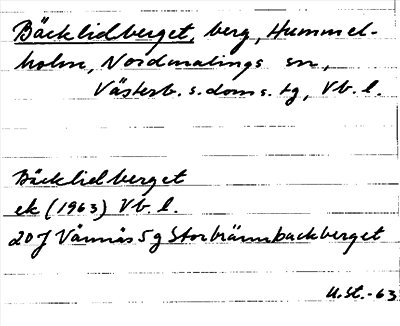 Bäcklidberget, berg, Hummel-
holm, Nordmalings sn,
Västerb. s. doms. tg, Vb. l.
Bäcklidberget
ek (1963) Vb. l.
20J Vännäs 5g Storbrännbackberget
U.St.-63